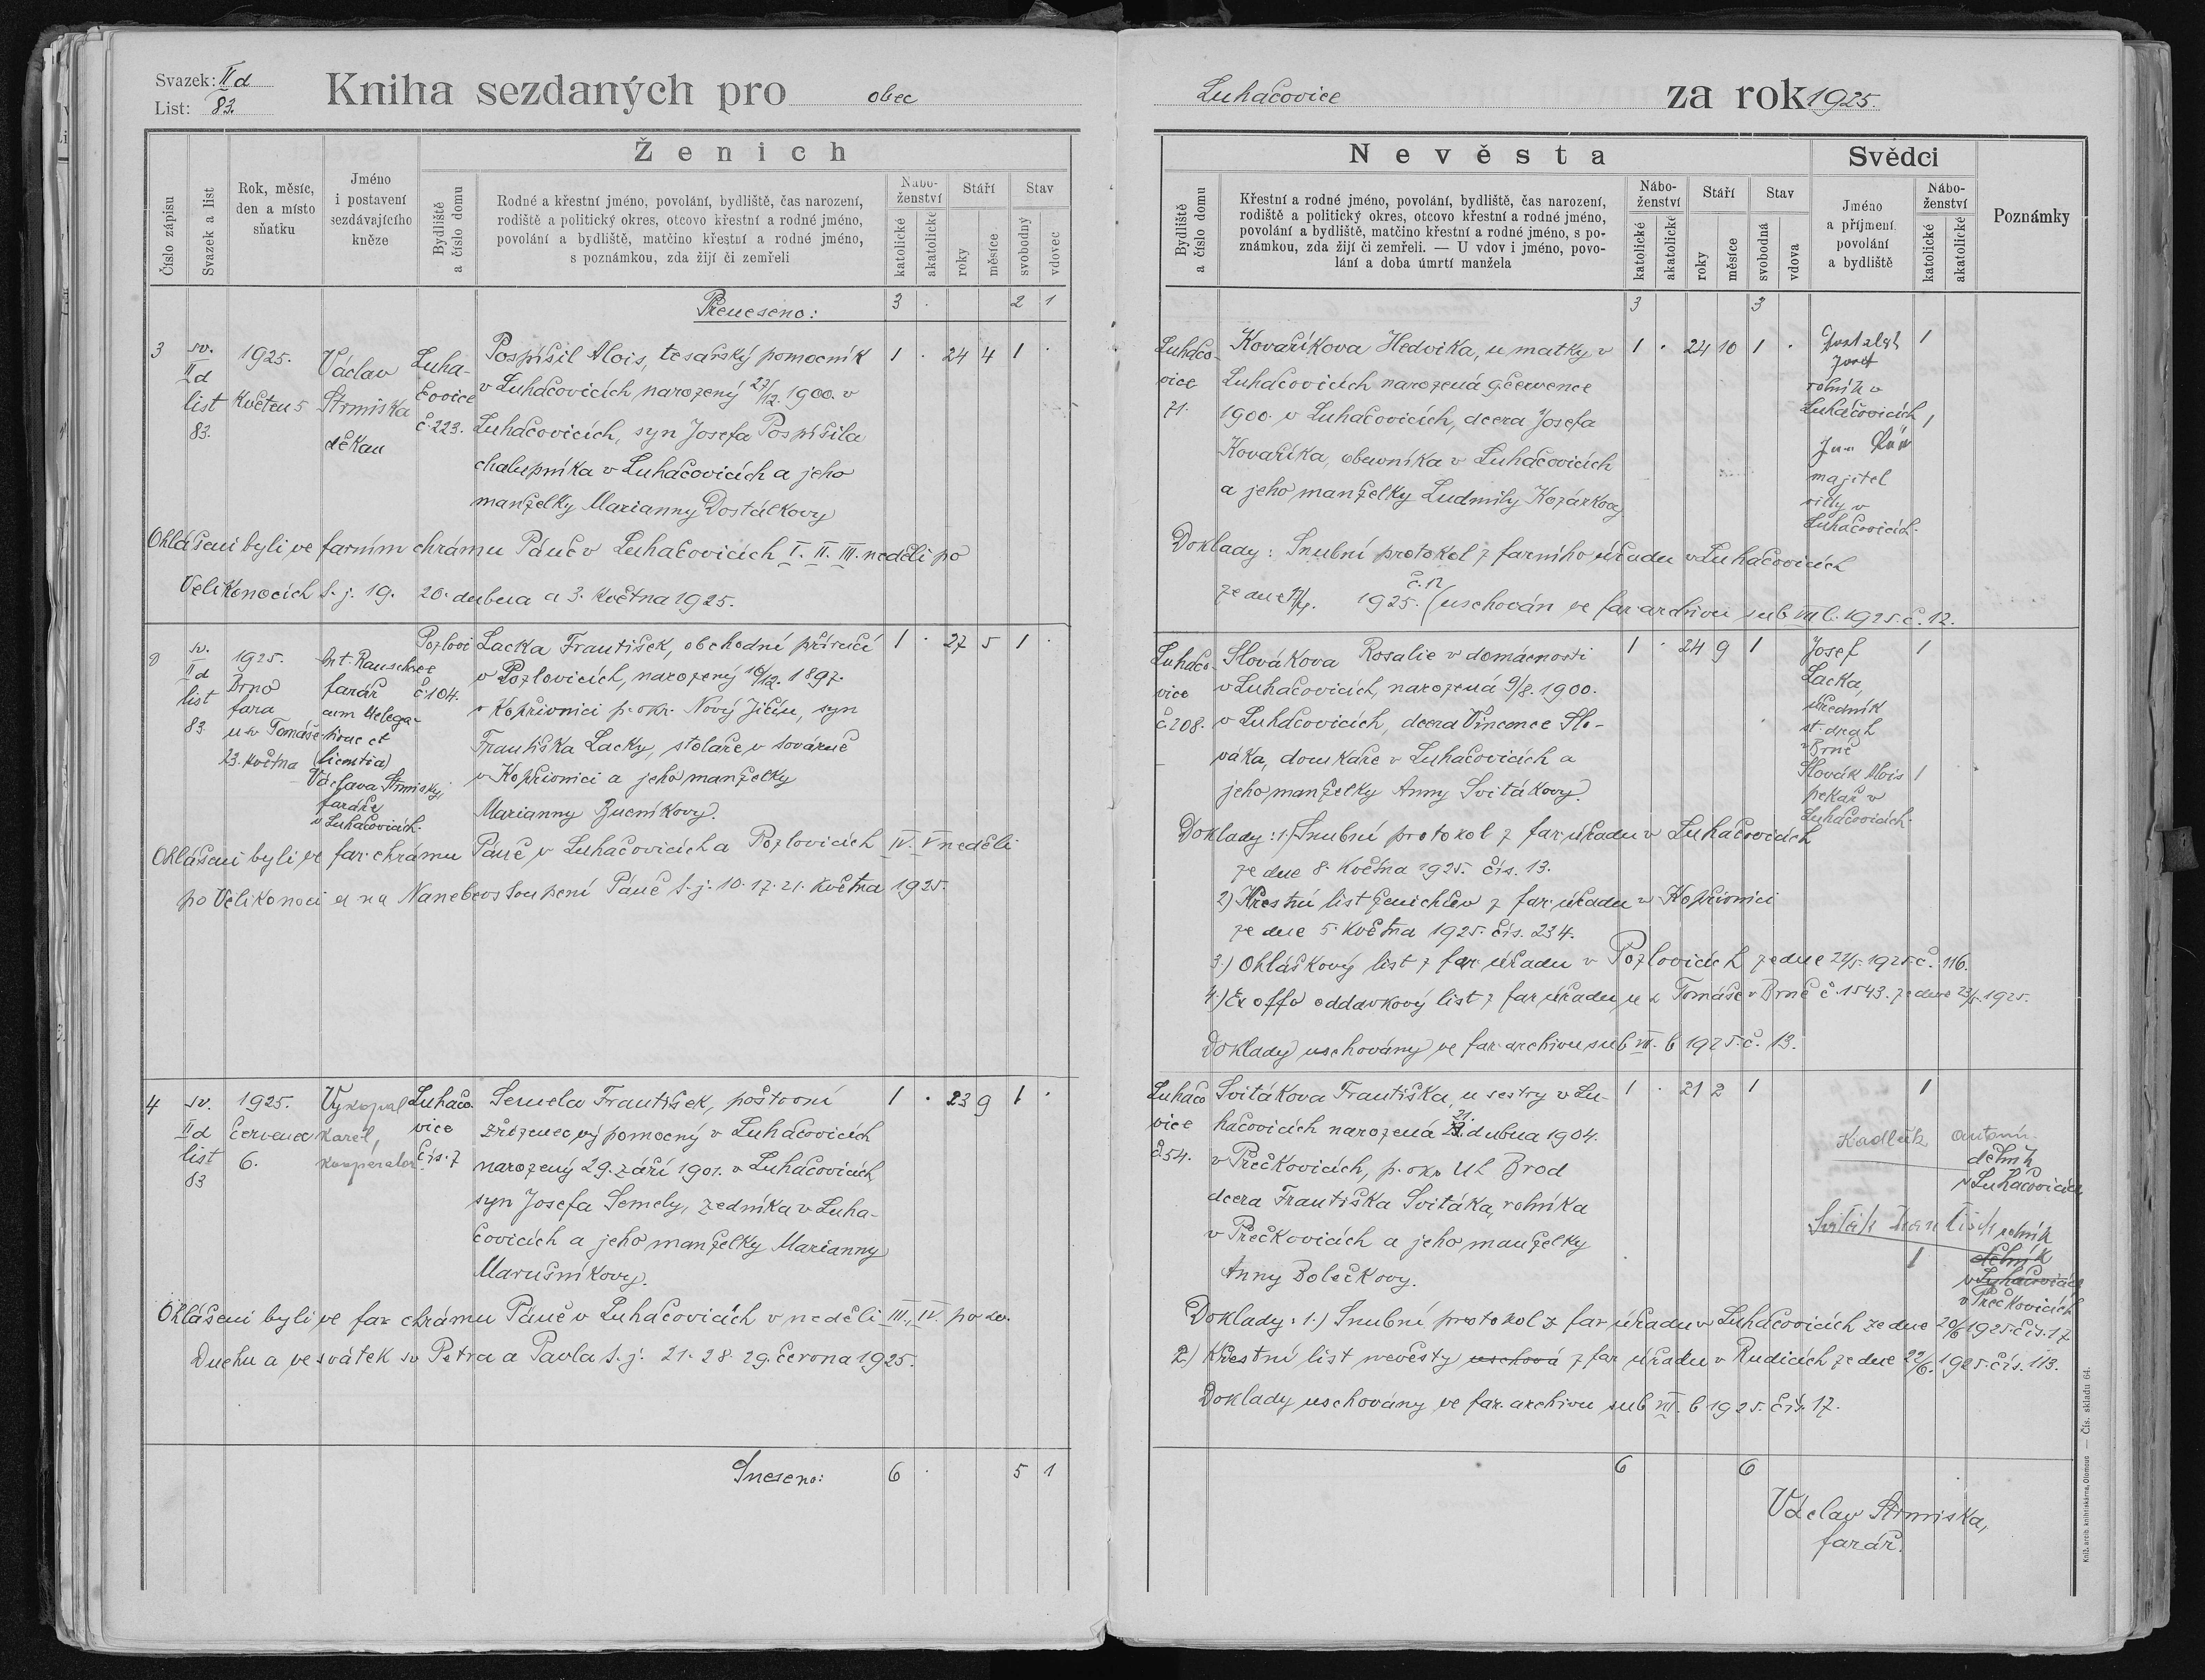 Svazek: IId
List: 83.
Kniha sezdaných pro obec
Ženich
Číslo zápisu
Svazek a list
Rok, měsíc,
den a místo
sňatku
Jméno
i postavení
sezdávajícího
kněze
Bydliště
a číslo domu
Rodné a křestní jméno, povolání, bydliště, čas narození,
rodiště a politický okres, otcovo křestní a rodné jméno,
povolání a bydliště, matčino křestní a rodné jméno,
s poznámkou, zda žijí či zemřeli
Nábo-
ženství
katolické
akatolické
Stáří
roky
měsíce
Stav
svobodný
vdovec
Přeneseno: 3 . 2 1
3
sv.
IId
list
83.
1925.
Květen 5
Václav
Strmiska
děkan
Luha-
čovice
č. 223.
Pospíšil Alois, tesařský pomocník
v Luhačovicích narozený 27/12. 1900. v
Luhačovicích, syn Josefa Pospíšila
chalupníka v Luhačovicích a jeho
manželky Marianny Dostálkovy
1 . 24 4 1 .
Ohlášeni byli ve farním chrámu Páně v Luhačovicích I. II. III. neděli po
Velikonocích t. j. 19. 20. dubna a 3. května 1925.
sv.
IId
list
83
1925.
Brno
fara
u sv Tomáše
23. května
farář
cum delega-
tione et
licentia
Václava Strmisky,
faráře
v Luhačovicích.
Pozlovi
ce
č 104.
Lacka František, obchodní příručí
v Pozlovicích, narozený 16/12. 1897.
v Kopřivnici p. okr. Nový Jičín, syn
Františka Lacky, stolaře v továrně
v Kopřivnici a jeho manželky
Marianny
1 . 27 5 1 .
Ohlášeni byli ve far. chrámu Páně v Luhačovicích a Pozlovicích IV. V neděli
po Velikonoci a na Nanebevstoupení Páně t. j. 10. 17. 21. května 1925.
4
sv.
IId
list
83
1925.
červenec
6.
Vykopal
Karel,
kooperator
Luhačo-
vice
čís. 7
Semela František, poštovní
zřízenec, vý pomocný v Luhačovicích
narozený 29. září 1901. v Luhačovicích
syn Josefa Semely, zedníka v Luha-
čovicích a jeho manželky Marianny
Marušníkovy.
1 . 23 9 1 .
Ohlášeni byli ve far chrámu Páně v Luhačovicích v neděli III., IV. po sv.
Duchu a ve svátek sv Petra a Pavla t. j. 21. 28. 29. června 1925.
Sneseno: 6 . 5 1
Luhačovice za rok 1925.
Nevěsta
Svědci
Poznámky
Bydliště
a číslo domu
Křestní a rodné jméno, povolání, bydliště, čas narození,
rodiště a politický okres, otcovo křestní a rodné jméno,
povolání a bydliště, matčino křestní a rodné jméno, s po-
známkou, zda žijí či zemřeli. — U vdov i jméno, povo-
lání a doba úmrtí manžela
Nábo-
ženství
katolické
akatolické
Stáří
roky
měsíce
Stav
svobodná
vdova
Jméno
a příjmení
povolání
a bydliště
Nábo-
ženství
katolické
akatolické
3 3
Luhačo-
vice
71.
Kovaříkova Hedvika, u matky v
Luhačovicích narozená 9 července
1900. v Luhačovicích, dcera Josefa
Kovaříka, obuvníka v Luhačovicích
a jeho manželky Ludmily Kozárkovy
1 . 24 10 1 .
Josef
rolník v
Luhačovicích
1
Jan
majitel
villy v
Luhačovicích.
1
Doklady: Snubní protokol z farního úřadu v Luhačovicích
ze dne 1925. č. 12 (uschován ve far. archivu sub VII b. 1925. č. 12.
Luhačo-
vice
č 208.
Slovákova Rosalie v domácnosti
v Luhačovicích, narozená 9/8. 1900.
v Luhačovicích, dcera Vincence Slo-
váka, domkáře v Luhačovicích a
jeho manželky Anny Svitákovy.
1 . 24 9 1
Josef
Lacka,
úředník
st. drah
v Brně
1
Slovák Alois
pekař v
Luhačovicích.
1
Doklady: 1.) Snubní protokol z far. úřadu v Luhačovicích
ze dne 8. května 1925. čís. 13.
2) Křestní list ženichův z far. úřadu v Kopřivnici
ze dne 5. května 1925. čís. 234.
3.) Ohláškový list z far. úřadu v Pozlovicích ze dne 22/5. 1925 č. 116.
4.) Ex offo oddavkový list z far úřadu u s Tomáše v Brně č. 1543. ze dne 23/5. 1925.
Doklady uschovány ve far. archivu sub VII. b 1925. č. 13.
Luhačo
vice
č 54.
Svitákova Františka, u sestry v Lu-
hačovicích narozená 21. dubna 1904.
v Přečkovicích, p. okr. Uh Brod
dcera Františka Svitáka, rolníka
v Přečkovicích a jeho manželky
Anny Bolečkovy.
1 . 21 2 1
1
Kadlčík Antonín
dělník
v Luhačovicích
Sviták František rolník
1
dělník
v Luhačovicích
v Přečkovicích
Doklady: 1.) Snubní protokol z far úřadu v Luhačovicích ze dne 20/6 1925 čís. 17
2.) Křestní list nevěsty uschová z far úřadu v Rudicích ze dne 22/6. 1925. čís. 113.
Doklady uschovány ve far. archivu sub VII. b 1925. čís. 17.
6 6
Václav Strmiska,
farář.
Kníž. arcib. knihtiskárna, Olomouc — Čís. skladu 64.